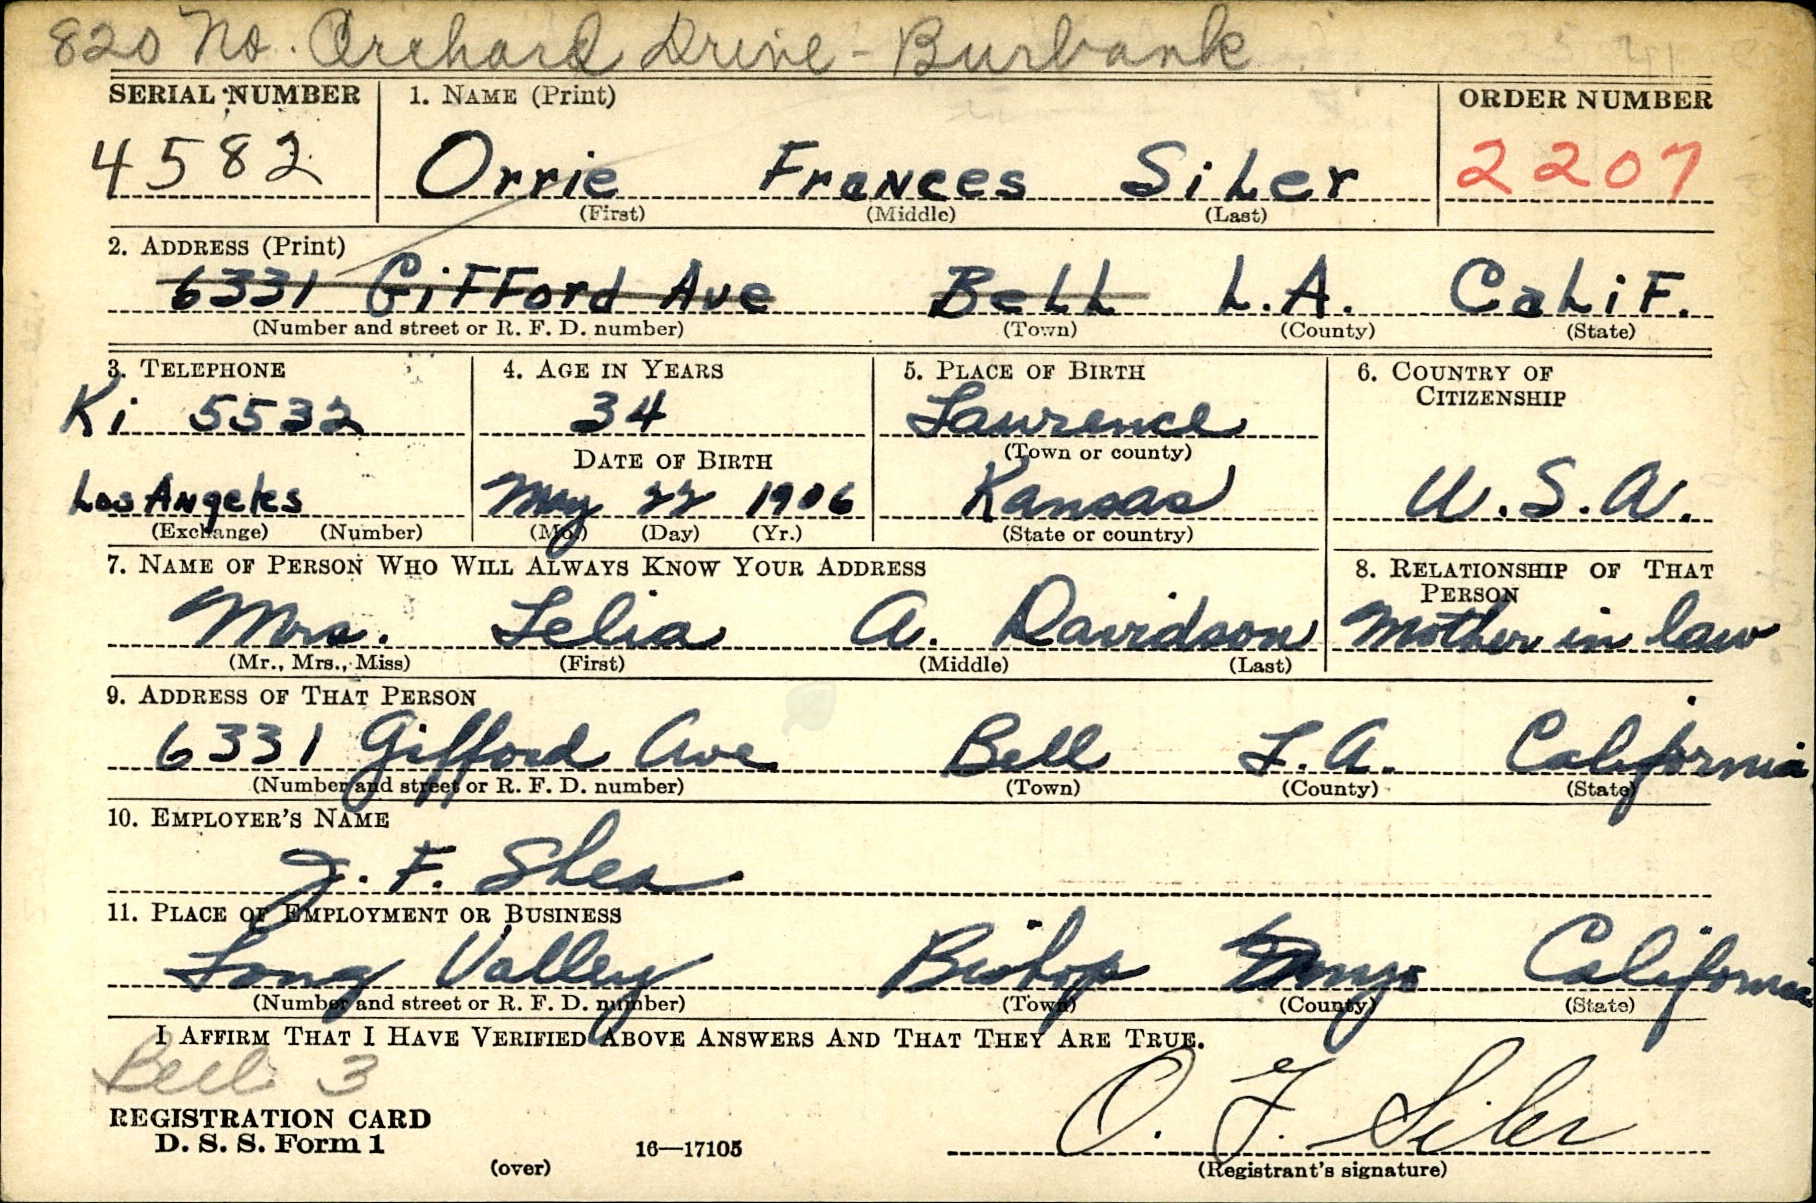 820 No. Orchard Drive - Burbank
SERIAL NUMBER 1. NAME (Print) ORDER NUMBER
4582 Orrie Frances Siler 2207
(First) (Middle) (Last)
2. ADDRESS (Print)
6331 Gifford Ave Bell L.A. Calif.
(Number and street or R. F. D. number) (Town) (County) (State)
3. TELEPHONE 4. AGE IN YEARS 5. PLACE OF BIRTH 6. COUNTRY OF
CITIZENSHIP
Ki 5532 34 Lawrence
(Town or county)
DATE OF BIRTH
Los Angeles May 22 1906 Kansas U.S.A.
(Exchange) (Number) (Mo.) (Day) (Yr.) (State or country)
7. NAME OF PERSON WHO WILL ALWAYS KNOW YOUR ADDRESS 8. RELATIONSHIP OF THAT
PERSON
Mrs. Lelia A. Davidson Mother in law
(Mr., Mrs., Miss) (First) (Middle) (Last)
9. ADDRESS OF THAT PERSON
6331 Gifford Ave Bell L.A. California
(Number and street or R. F. D. number) (Town) (County) (State)
10. EMPLOYER'S NAME
J. F. Shea
11. PLACE OF EMPLOYMENT OR BUSINESS
Long Valley Bishop California
(Number and street or R. F. D. number) (Town) (County) (State)
I AFFIRM THAT I HAVE VERIFIED ABOVE ANSWERS AND THAT THEY ARE TRUE.
Bell 3
REGISTRATION CARD
D. S. S. Form 1 16—17105 O. F. Siler
(over) (Registrant's signature)